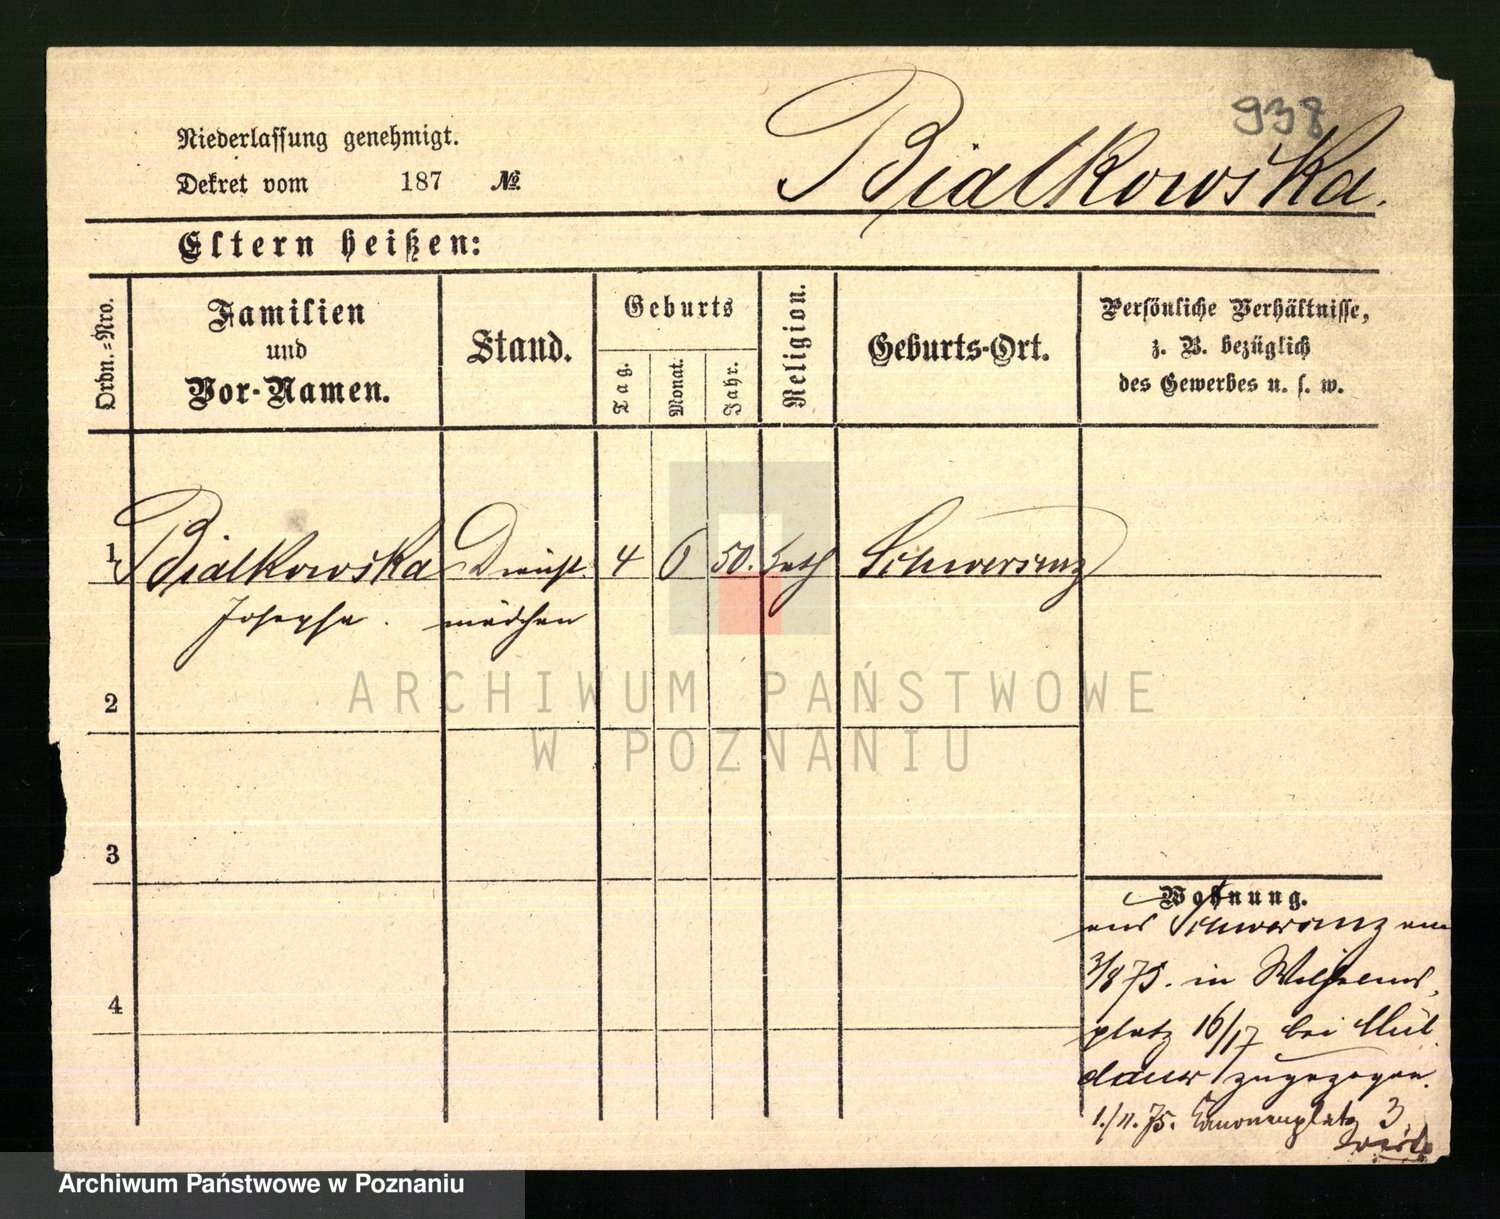 938
Bialkowska.
Niederlassung genehmigt.
Dekret vom 187 №
Eltern heißen:
Ordn.-Nro.
Familien
und
Vor-Namen.
Stand.
Geburts
Tag.
Monat.
Jahr.
Religion.
Geburts-Ort.
Persönliche Verhältnisse,
z. B. bezüglich
des Gewerbes u. s. w.
1 Bialkowska Dienst 4 6 50. kath Schwersenz
Josepha. mädchen
2
3
4
Wohnung.
aus Schwersenz am
3/8 75. in Wilhelms
platz 16/17 bei
zugezogen.
1./11. 75. Kanonenplatz 3
ARCHIWUM PAŃSTWOWE
W POZNANIU
Archiwum Państwowe w Poznaniu